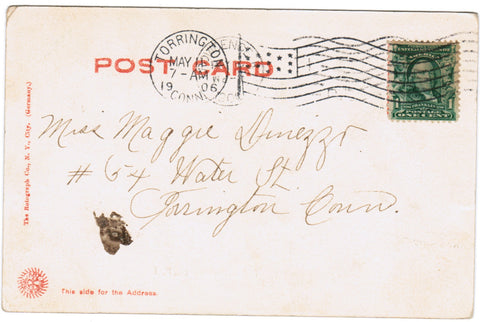 TORRINGTON
MAY
7-AM
1906
CONN.
POST CARD
ONE CENT
Miss Maggie Dinezzi
#64 Water St.
Torrington Conn.
The Rotograph Co., N. Y., City. (Germany.)
This side for the Address.